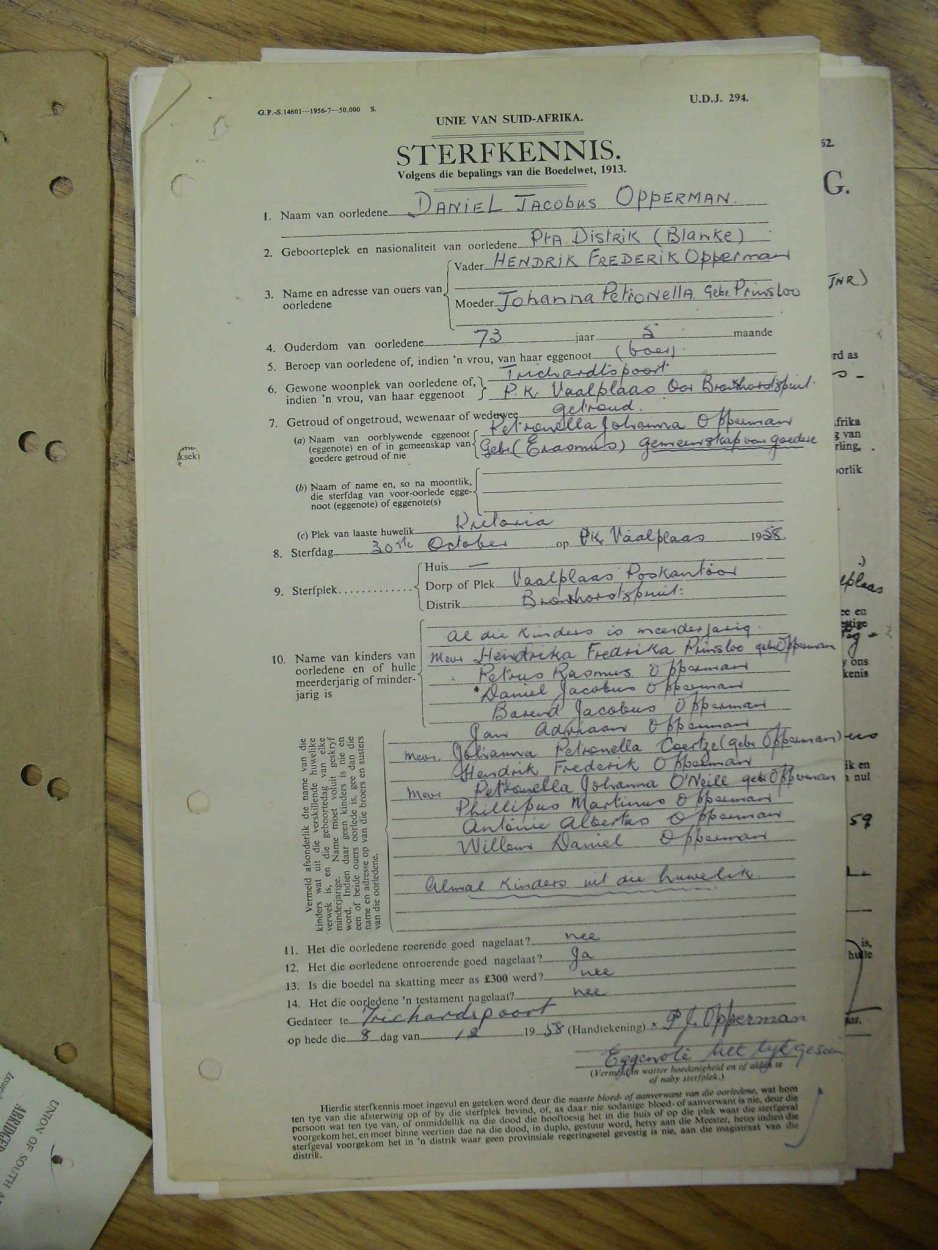 G.P.-S.14601---1956-7-50,000 S.
U.D.J. 294.
UNIE VAN SUID-AFRIKA.
STERFKENNIS.
Volgens die bepalings van die Boedelwet, 1913.
1. Naam van oorledene DANIEL JACOBUS OPPERMAN.
2. Geboorteplek en nasionaliteit van oorledene Pta Distrik (Blanke)
3. Name en adresse van ouers van oorledene
Vader HENDRIK FREDERIK Opperman
Moeder Johanna Petronella Gebr. Prinsloo
4. Ouderdom van oorledene 73 jaar 5 maande
5. Beroep van oorledene of, indien 'n vrou, van haar eggenoot (boer).
6. Gewone woonplek van oorledene of, indien 'n vrou, van haar eggenoot
Trichardtspoort
P.K. Vaalplaas Oor Bronkhorstspruit.
7. Getroud of ongetroud, wewenaar of weduwee getroud.
(a) Naam van oorblywende eggenoot (eggenote) en of in gemeenskap van goedere getroud of nie
Petronella Johanna Opperman
Gebr (Erasmus) gemeenskap van goedere
(b) Naam of name en, so na moontlik, die sterfdag van voor-oorlede eggenoot (eggenote) of eggenote(s)
(c) Plek van laaste huwelik Pretoria
8. Sterfdag 30ste October op P.K. Vaalplaas 1958.
9. Sterfplek............
Huis —
Dorp of Plek Vaalplaas Poskantoor
Distrik Bronkhorstspruit:
10. Name van kinders van oorledene en of hulle meerderjarig of minderjarig is
Al die kinders is meerderjarig.
Mevr Hendrika Fredrika Prinsloo gebr Opperman
Petrus Rasmus Opperman
Daniel Jacobus Opperman
Barend Jacobus Opperman
Jan Adriaan Opperman
Mevr. Johanna Petronella Coertze (gebr Opperman)
Hendrik Frederik Opperman
Mevr Petronella Johanna O'Neill gebr Opperman
Phillipus Martinus Opperman
Antonie Albertus Opperman
Willem Daniel Opperman
Almal kinders uit die huwelik.
Vermeld afsonderlik die name van die
kinders wat uit die verskillende huwelike
verwek is, en die geboortedag van elke
minderjarige. Name moet voluit geskryf
word. Indien daar geen kinders is nie en
een of beide ouers oorlede is, gee dan die
name en adresse op van die broers en susters
van die oorledene.
11. Het die oorledene roerende goed nagelaat? nee
12. Het die oorledene onroerende goed nagelaat? Ja
13. Is die boedel na skatting meer as £300 werd? nee
14. Het die oorledene 'n testament nagelaat? nee
Gedateer te Trichardspoort
op hede die 8 dag van 12 1958 (Handtekening) P.J. Opperman
Eggenote
(Vermeld in watter hoedanigheid en of aldan te of naby sterfplek.)
Hierdie sterfkennis moet ingevul en geteken word deur die naaste bloed- of aanverwant van die oorledene, wat hom
ten tye van die afsterwing op of by die sterfplek bevind, of, as daar nie sodanige bloed- of aanverwant is nie, deur die
persoon wat ten tye van, of onmiddelik na die dood die hooftoesig het in die huis of op die plek waar die sterfgeval
voorgekom het, en moet binne veertien dae na die dood, in duplo, gestuur word, hetsy aan die Meester, hetsy indien die
sterfgeval voorgekom het in 'n distrik waar geen provinsiale regeringsetel gevestig is nie, aan die magistraat van die
distrik.
UNION OF SOUTH A
ABRIDGED
G.
JNR)
rd as
59